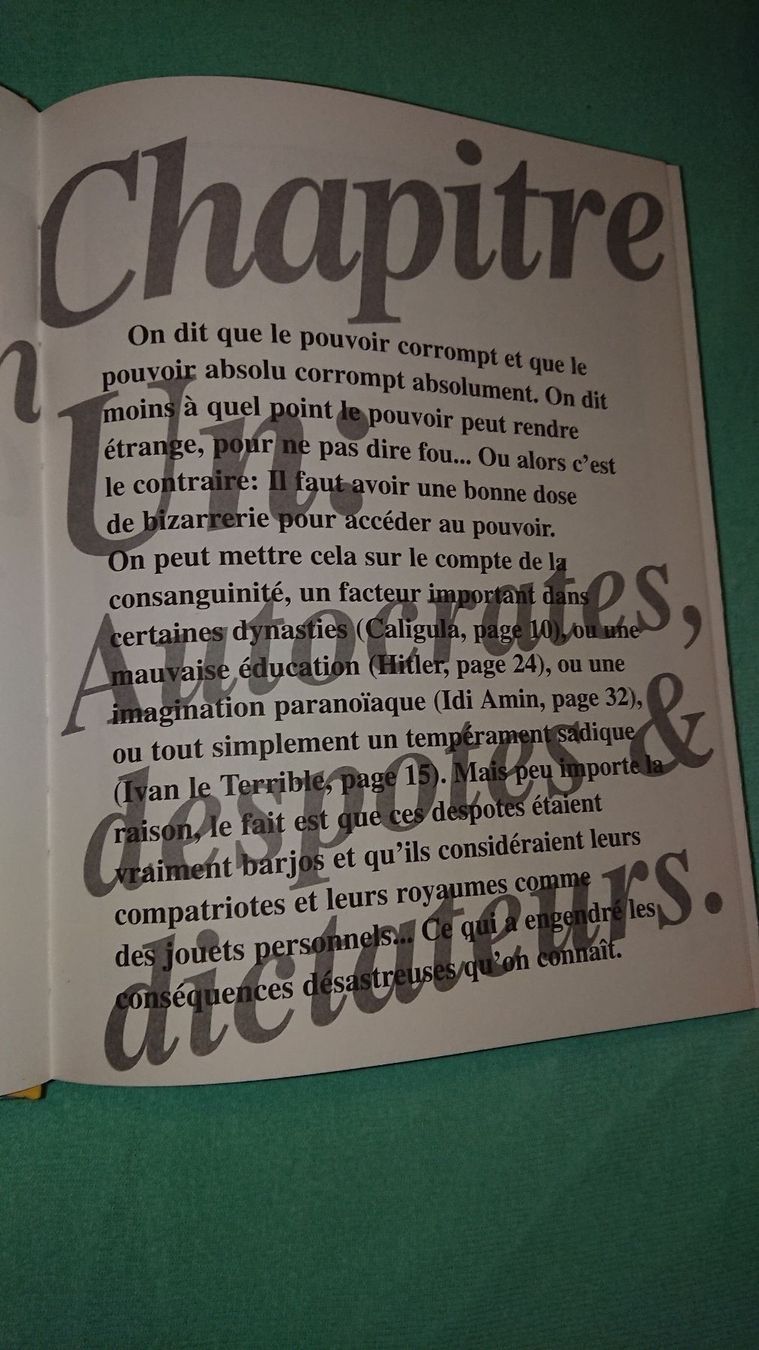 Chapitre
Un:
Autocrates,
despotes &
dictateurs.
On dit que le pouvoir corrompt et que le
pouvoir absolu corrompt absolument. On dit
moins à quel point le pouvoir peut rendre
étrange, pour ne pas dire fou... Ou alors c'est
le contraire: Il faut avoir une bonne dose
de bizarrerie pour accéder au pouvoir.
On peut mettre cela sur le compte de la
consanguinité, un facteur important dans
certaines dynasties (Caligula, page 10), ou une
mauvaise éducation (Hitler, page 24), ou une
imagination paranoïaque (Idi Amin, page 32),
ou tout simplement un tempérament sadique
(Ivan le Terrible, page 15). Mais peu importe la
raison, le fait est que ces despotes étaient
vraiment barjos et qu'ils considéraient leurs
compatriotes et leurs royaumes comme
des jouets personnels... Ce qui a engendré les
conséquences désastreuses qu'on connaît.